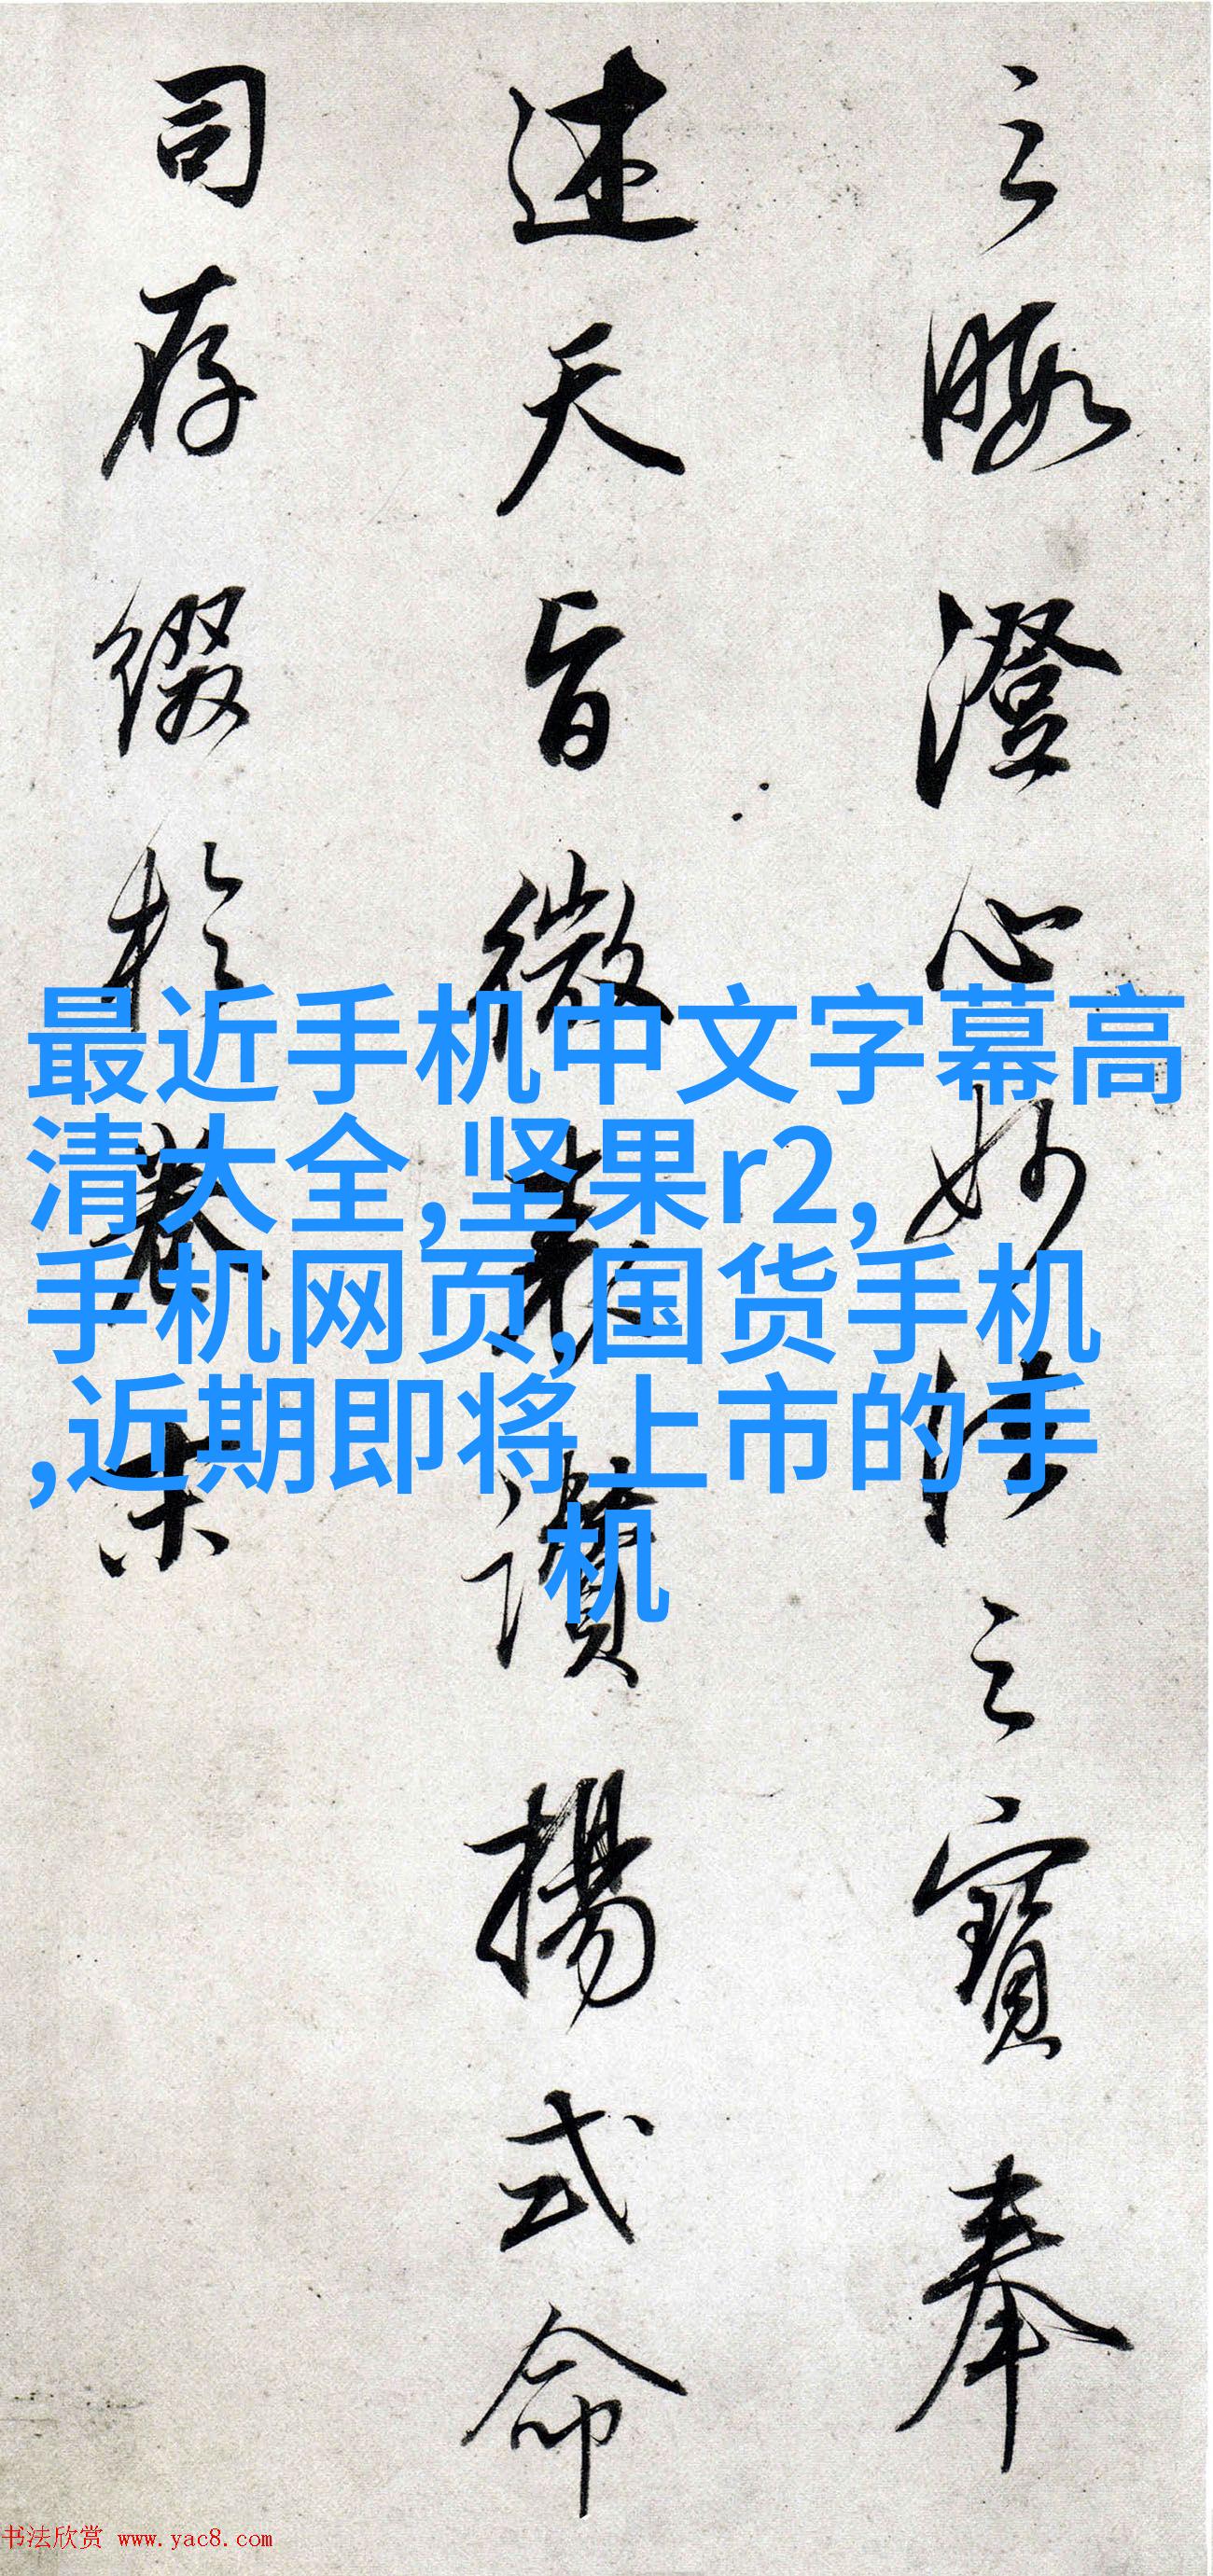 之暇澄心妙法之寶奉
述天旨微表讚揚式命
司存綴於卷末
最近手机中文字幕高
清大全,坚果r2,
手机网页,国货手机
,近期即将上市的手
机
书法欣赏 www.yac8.com